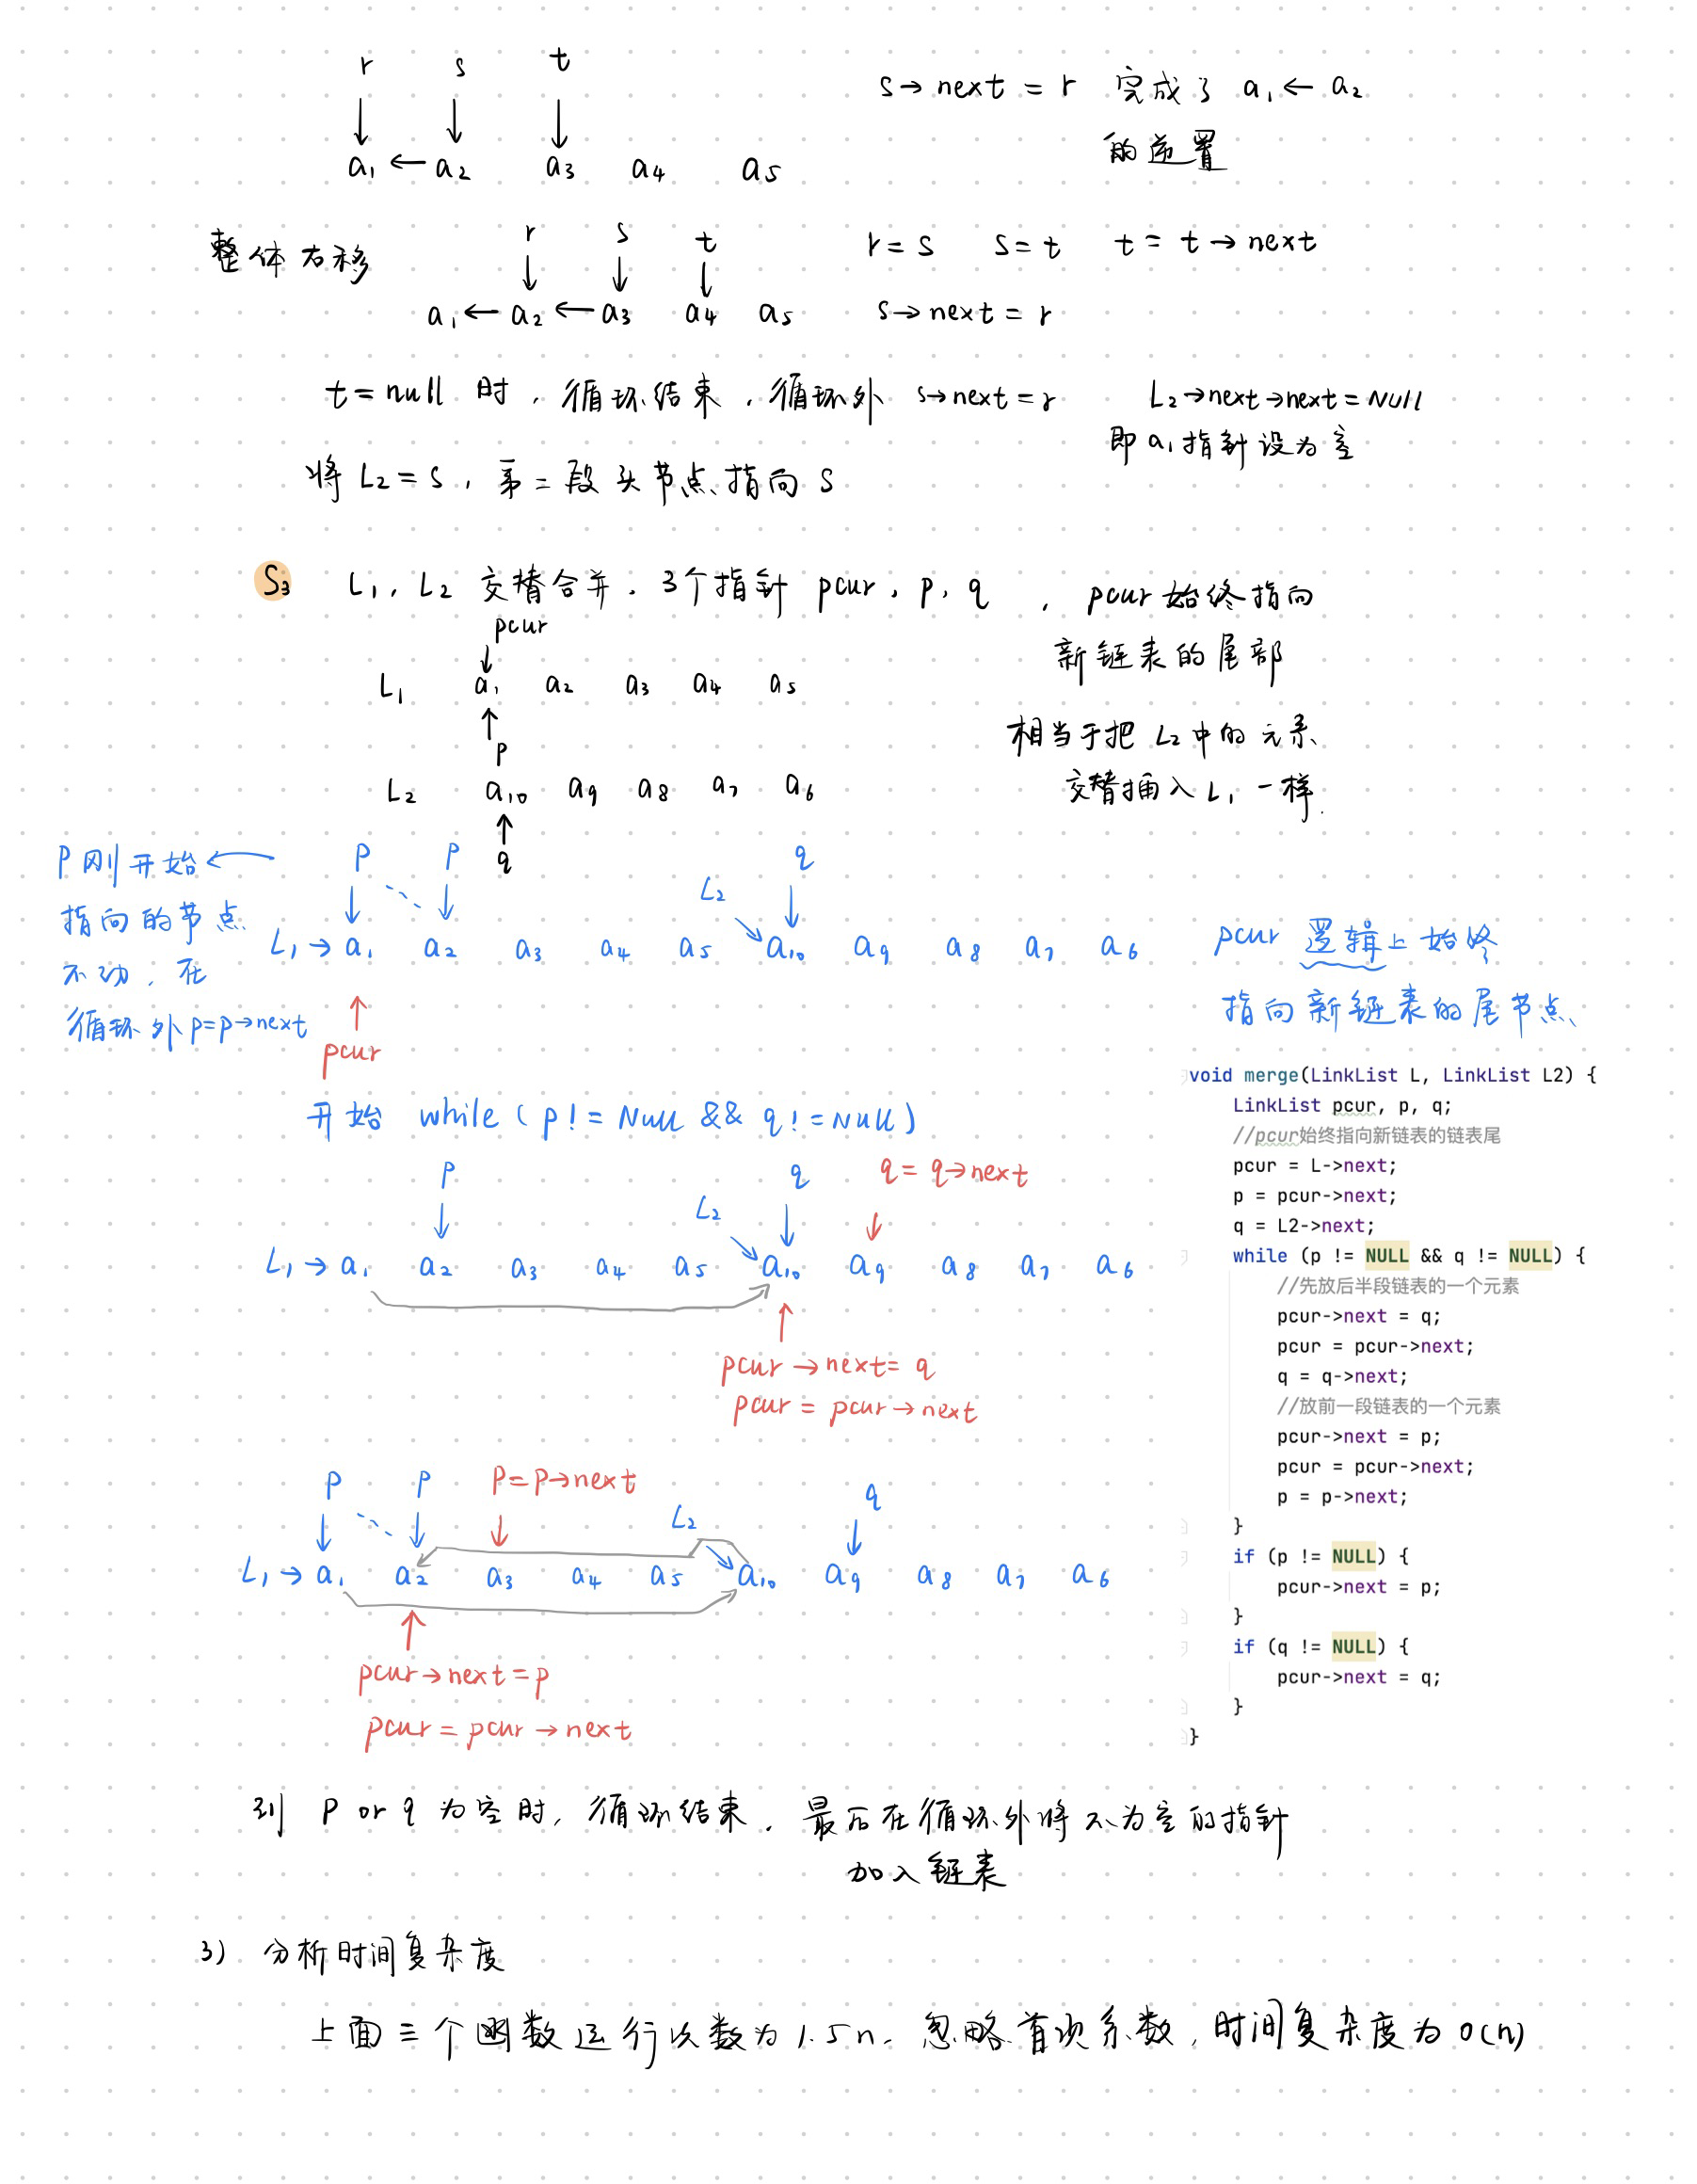 r s t
s→next = r 完成了 a₁ ← a₂
的逆置
a₁ ← a₂ a₃ a₄ a₅
整体右移
r s t
r = s s = t t = t → next
a₁ ← a₂ ← a₃ a₄ a₅
s→next = r
t = null 时, 循环结束, 循环外 s→next = r
L₂→next→next = NULL
即 a₁ 指针设为空
将 L₂ = s, 第二段头节点指向 s
S₃ L₁, L₂ 交替合并. 3个指针 pcur, p, q, pcur 始终指向
新链表的尾部
pcur
L₁ a₁ a₂ a₃ a₄ a₅
p
相当于把 L₂ 中的元素
交替插入 L₁ 一样.
L₂ a₁₀ a₉ a₈ a₇ a₆
q
P 刚开始
指向的节点
不动, 在
循环外 p=p→next
p p L₂ q
L₁ → a₁ a₂ a₃ a₄ a₅ a₁₀ a₉ a₈ a₇ a₆
pcur
pcur 逻辑上始终
指向新链表的尾节点
开始 while ( p != NULL && q != NULL )
p L₂ q q = q→next
L₁ → a₁ a₂ a₃ a₄ a₅ a₁₀ a₉ a₈ a₇ a₆
pcur → next = q
pcur = pcur → next
p p P = P→next L₂ q
L₁ → a₁ a₂ a₃ a₄ a₅ a₁₀ a₉ a₈ a₇ a₆
pcur → next = p
pcur = pcur → next
void merge(LinkList L, LinkList L2) {
LinkList pcur, p, q;
//pcur始终指向新链表的链表尾
pcur = L->next;
p = pcur->next;
q = L2->next;
while (p != NULL && q != NULL) {
//先放后半段链表的一个元素
pcur->next = q;
pcur = pcur->next;
q = q->next;
//放前一段链表的一个元素
pcur->next = p;
pcur = pcur->next;
p = p->next;
}
if (p != NULL) {
pcur->next = p;
}
if (q != NULL) {
pcur->next = q;
}
}
到 p or q 为空时, 循环结束. 最后在循环外将不为空的指针
加入链表
3) 分析时间复杂度
上面三个函数运行次数为 1.5n. 忽略首项系数, 时间复杂度为 O(n)